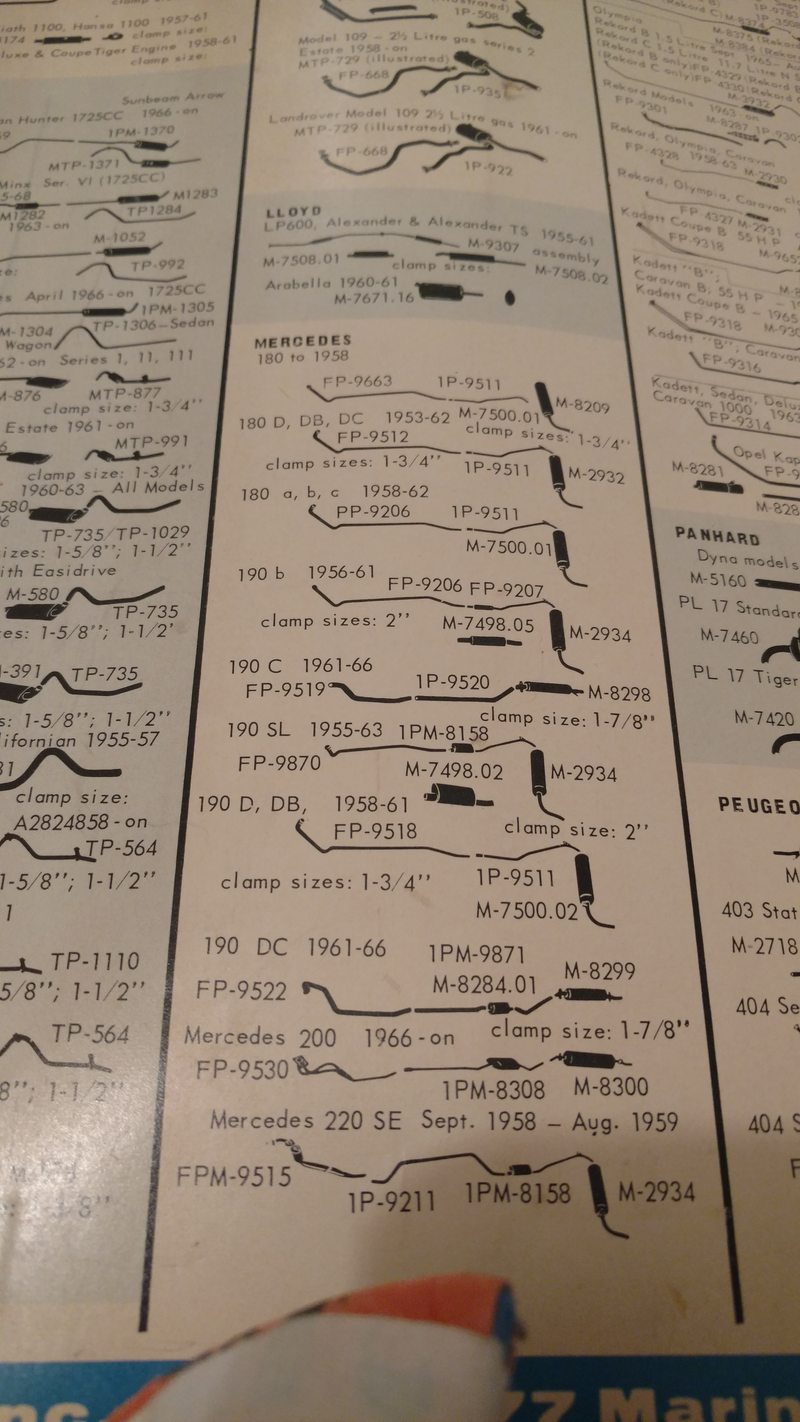 iath 1100, Hansa 1100 1957-61
174 clamp size:
luxe & Coupe Tiger Engine 1958-61
clamp size:
Sunbeam Arrow
an Hunter 1725CC 1966-on
1PM-1370
MTP-1371
Minx Ser. VI (1725CC)
5-68 M1283
M1282 TP1284
1963-on
M-1052
TP-992
s April 1966-on 1725CC
1PM-1305
M-1304 TP-1306-Sedan
Wagon
62-on Series 1, 11, 111
A-876 MTP-877
clamp size: 1-3/4"
Estate 1961-on
MTP-991
clamp size: 1-3/4"
1960-63 - All Models
580
TP-735/TP-1029
izes: 1-5/8"; 1-1/2"
ith Easidrive
M-580
TP-735
es: 1-5/8"; 1-1/2'
-391 TP-735
s: 1-5/8"; 1-1/2"
lifornian 1955-57
clamp size:
A2824858-on
TP-564
1-5/8"; 1-1/2"
1
TP-1110
5/8"; 1-1/2"
TP-564
8"; 1-1/2"
1P-508
Model 109 - 2½ Litre gas series 2
Estate 1958-on
MTP-729 (illustrated)
FP-668
1P-935
Landrover Model 109 2½ Litre gas 1961-on
MTP-729 (illustrated)
FP-668
1P-922
LLOYD
LP600, Alexander & Alexander TS 1955-61
M-9307 assembly
M-7508.01 clamp sizes: M-7508.02
Arabella 1960-61
M-7671.16
MERCEDES
180 to 1958
FP-9663 1P-9511
M-8209
180 D, DB, DC 1953-62 M-7500.01
FP-9512 clamp sizes: 1-3/4"
clamp sizes: 1-3/4" 1P-9511 M-2932
180 a, b, c 1958-62
PP-9206 1P-9511
M-7500.01
190 b 1956-61 FP-9206 FP-9207
clamp sizes: 2" M-7498.05 M-2934
190 C 1961-66
FP-9519 1P-9520 M-8298
clamp size: 1-7/8"
190 SL 1955-63 1PM-8158
FP-9870 M-7498.02 M-2934
190 D, DB, 1958-61
FP-9518 clamp size: 2"
clamp sizes: 1-3/4" 1P-9511
M-7500.02
190 DC 1961-66 1PM-9871
FP-9522 M-8284.01 M-8299
Mercedes 200 1966-on clamp size: 1-7/8"
FP-9530
1PM-8308 M-8300
Mercedes 220 SE Sept. 1958 - Aug. 1959
FPM-9515
1P-9211 1PM-8158 M-2934
Olympia
M-3932
Rekord Models 1963 on
FP-9301 M-8287
Rekord, Olympia, Caravan
FP-4328 1958-63 M-2930
Rekord, Olympia, Caravan
FP 4327 M-2931
Kadett Coupe B 55 H P
FP-9318
Kadett "B",
Caravan B, 55 H P
Kadett Coupe B - 1965
FP-9318
Kadett "B", Caravan
FP-9316
Kadett, Sedan, Delu
Caravan 1000 1963
FP-9314
Opel Kap
M-8281 FP-9
M-828
PANHARD
Dyna models
M-5160
PL 17 Standar
M-7460
PL 17 Tiger
M-7420
PEUGEO
M
403 Stat
M-2718
404 Se
404 S
F
nc.
77 Marin